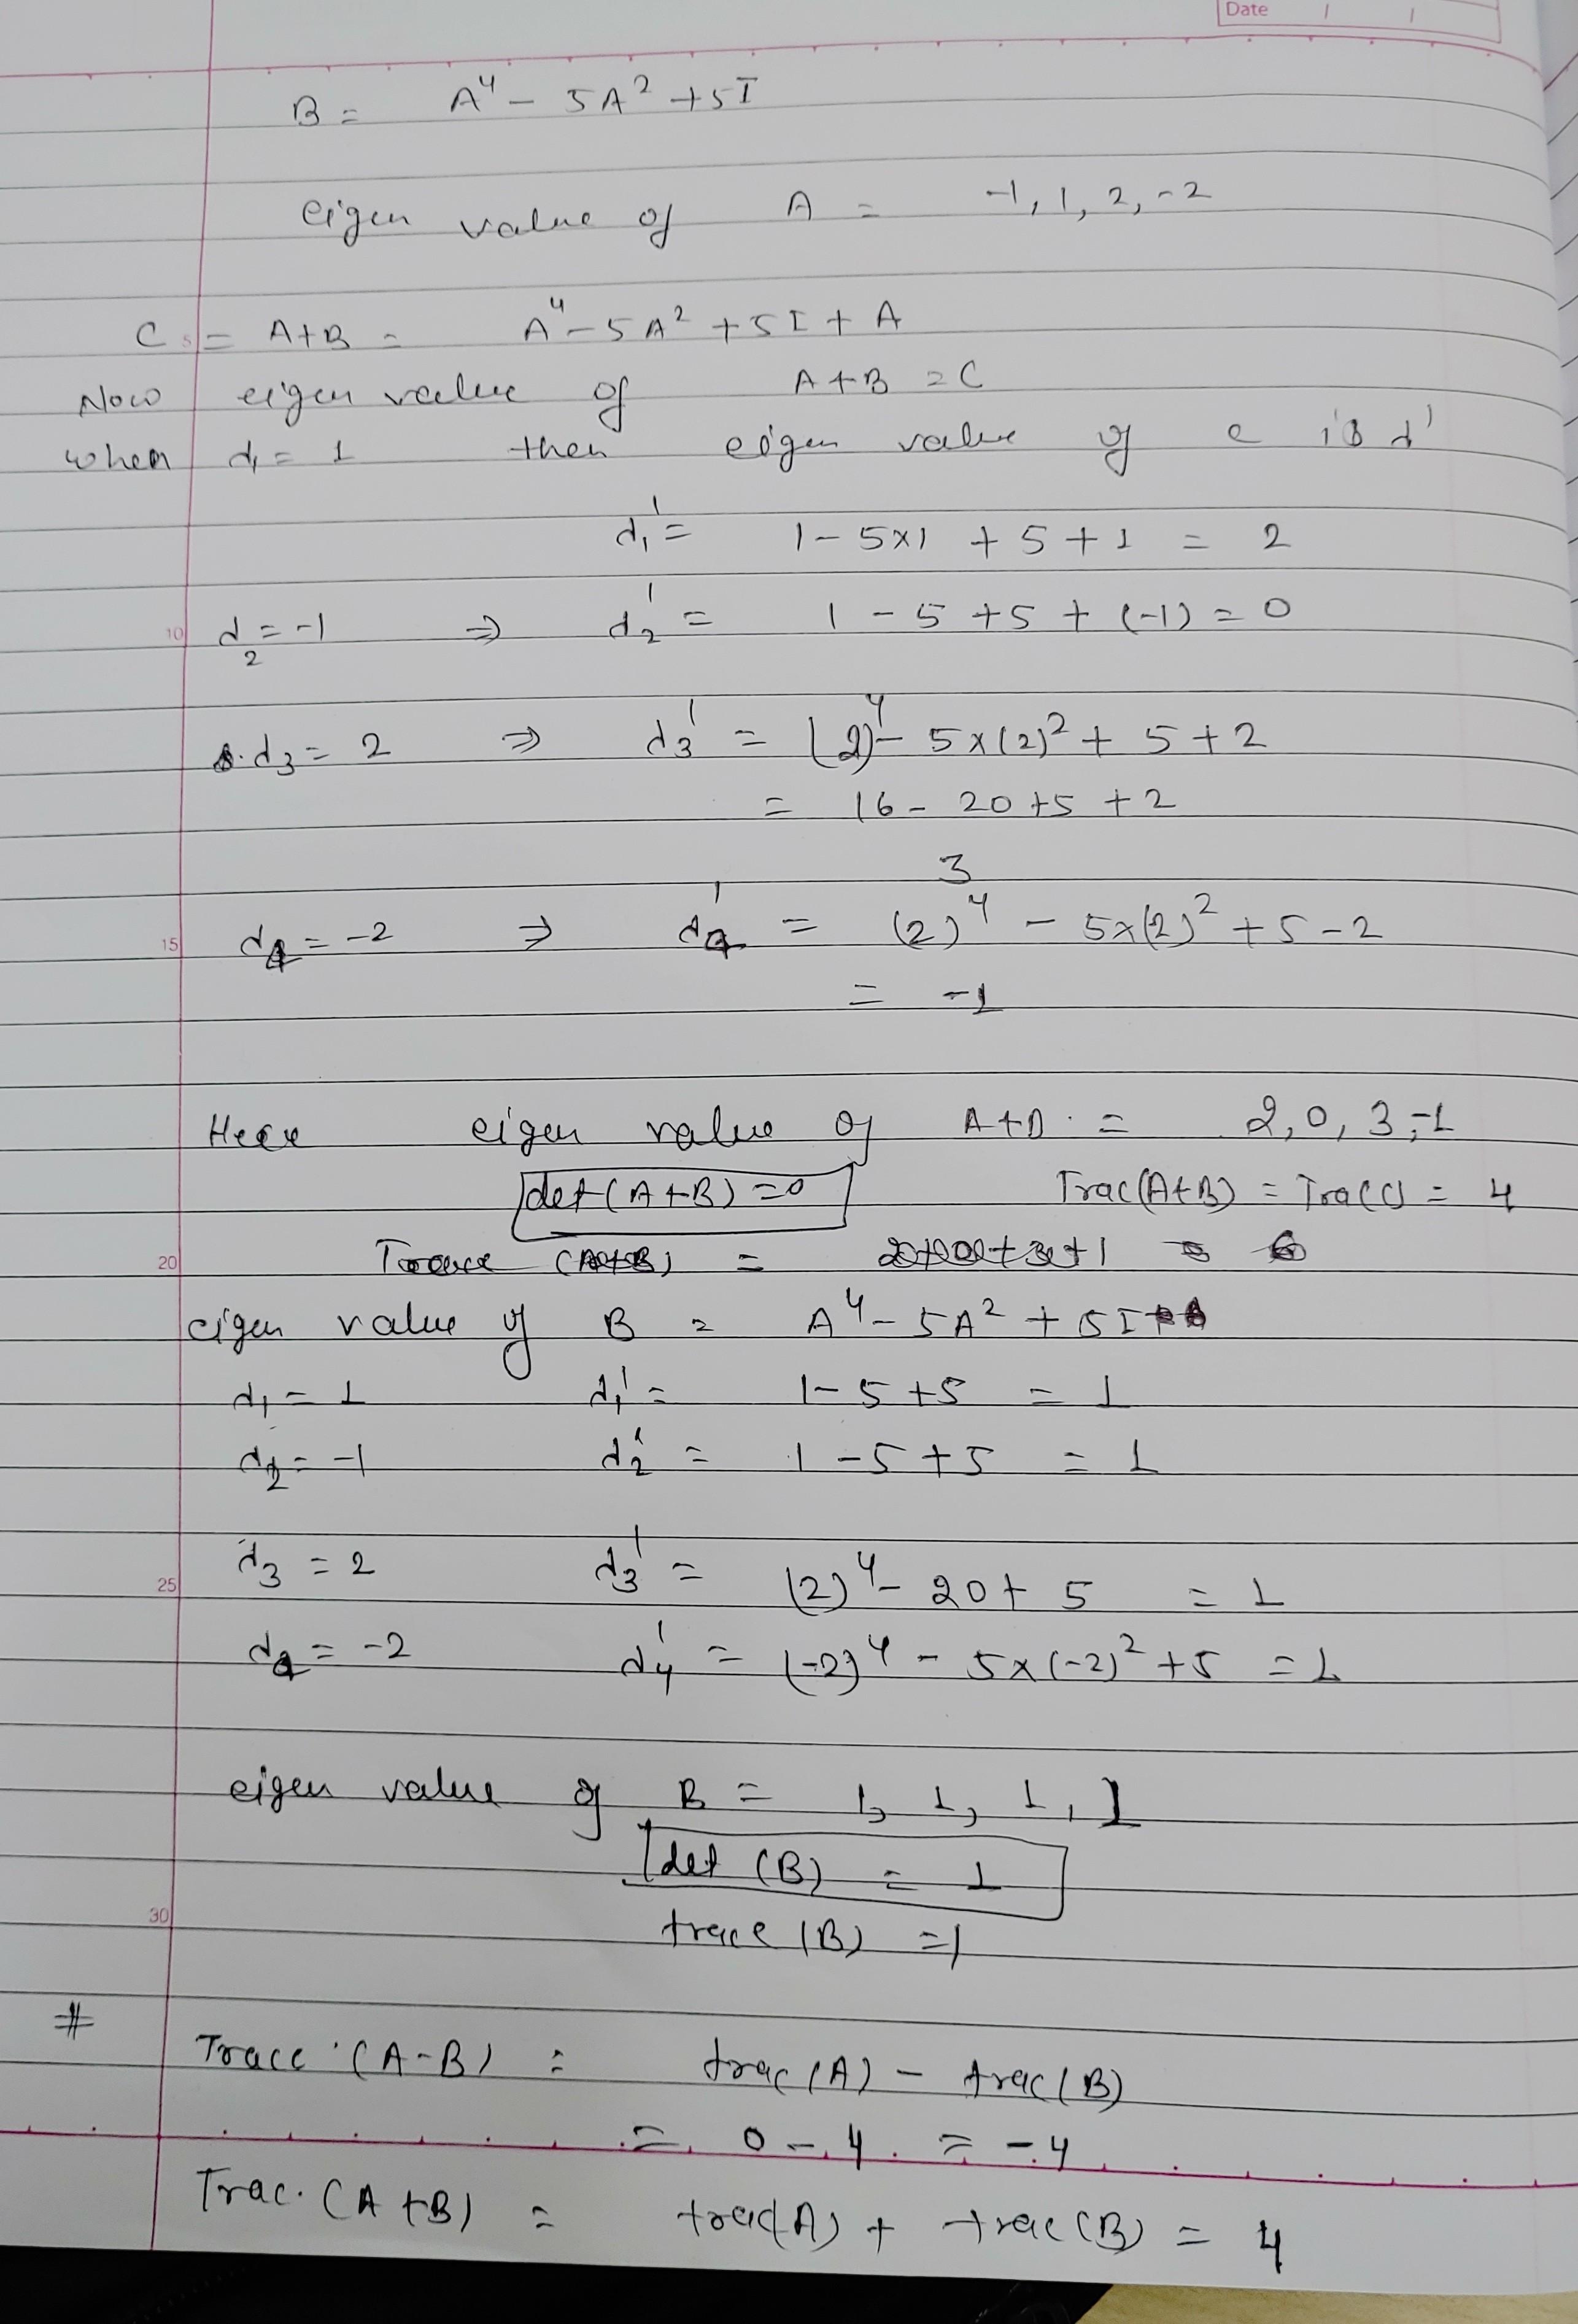 Date / /
B = A⁴ - 5A² + 5I
eigen value of A = -1, 1, 2, -2
C = A+B = A⁴ - 5A² + 5I + A
Now eigen value of A+B = C
when d₁ = 1 then eigen value of c is d'
d₁' = 1 - 5×1 + 5 + 1 = 2
10 d₂ = -1 ⇒ d₂' = 1 - 5 + 5 + (-1) = 0
d₃ = 2 ⇒ d₃' = (2)⁴ - 5×(2)² + 5 + 2
= 16 - 20 + 5 + 2
3
15 d₄ = -2 ⇒ d₄' = (2)⁴ - 5×(2)² + 5 - 2
= -1
Here eigen value of A+B = 2, 0, 3, -1
det(A+B) = 0 Trac(A+B) = Tra(C) = 4
20 Trace (A+B) =
eigen value of B = A⁴ - 5A² + 5I
d₁ = 1 d₁' = 1 - 5 + 5 = 1
d₂ = -1 d₂' = 1 - 5 + 5 = 1
d₃ = 2 d₃' = (2)⁴ - 20 + 5 = 1
25
d₄ = -2 d₄' = (-2)⁴ - 5×(-2)² + 5 = 1
eigen value of B = 1, 1, 1, 1
det (B) = 1
30
trace (B) = 1
#
Trace (A-B) = trac(A) - trac(B)
= 0 - 4 = -4
Trac. (A+B) = trac(A) + trac(B) = 4